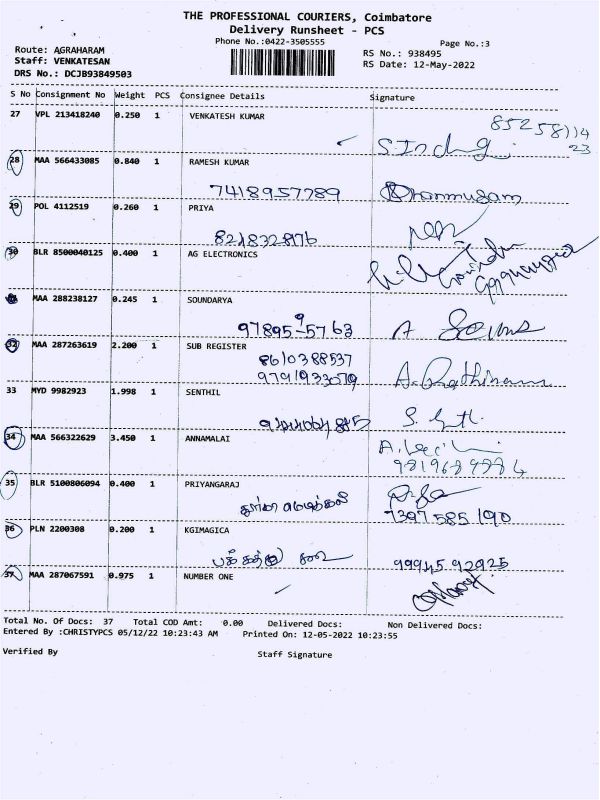 THE PROFESSIONAL COURIERS, Coimbatore
Delivery Runsheet - PCS
Phone No.:0422-3505555
Page No.:3
Route: AGRAHARAM
RS No.: 938495
Staff: VENKATESAN
RS Date: 12-May-2022
DRS No.: DCJB93849503
S No Consignment No Weight PCS Consignee Details Signature
27 VPL 213418240 0.250 1 VENKATESH KUMAR
28 MAA 566433085 0.840 1 RAMESH KUMAR
7418957789 Shanmugam
29 POL 4112519 0.260 1 PRIYA
30 BLR 8500040125 0.400 1 AG ELECTRONICS
MAA 288238127 0.245 1 SOUNDARYA
32 MAA 287263619 2.200 1 SUB REGISTER
8610388537
9791933079
33 MYD 9982923 1.998 1 SENTHIL
34 MAA 566322629 3.450 1 ANNAMALAI
35 BLR 5100806094 0.400 1 PRIYANGARAJ
7397585190
36 PLN 2200308 0.200 1 KGIMAGICA
99945 92925
37 MAA 287067591 0.975 1 NUMBER ONE
Total No. Of Docs: 37 Total COD Amt: 0.00 Delivered Docs: Non Delivered Docs:
Entered By :CHRISTYPCS 05/12/22 10:23:43 AM Printed On: 12-05-2022 10:23:55
Verified By
Staff Signature